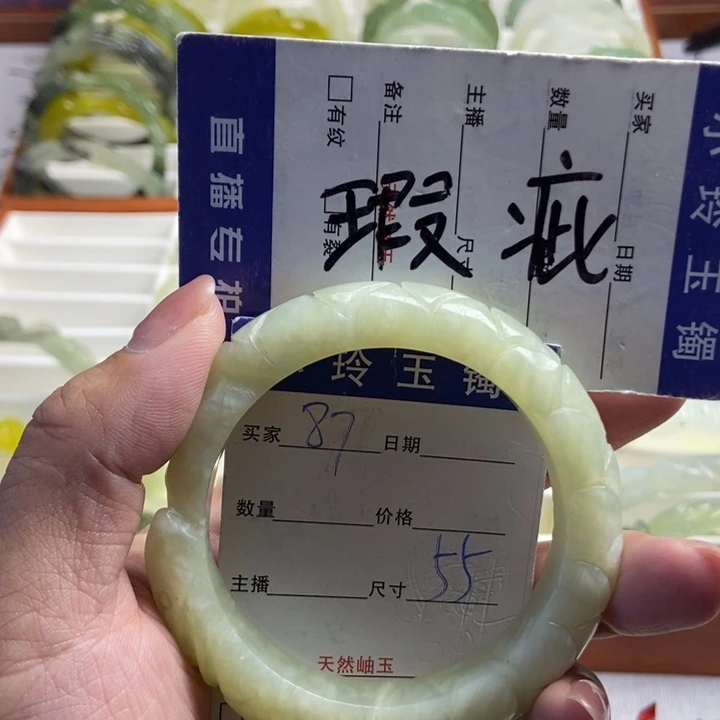 玲玉镯
直播专
买家
数量
主播
备注
□有纹
日期
尺寸
瑕疵
玲玉镯
买家 87 日期
数量 价格
主播 尺寸 55
天然岫玉